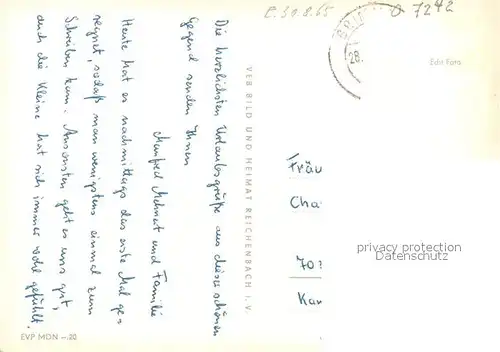 E. 30.8.65
O 7242
Echt Foto
Die herzlichsten Urlaubsgrüße aus dieser schönen
Gegend senden Ihnen
Manfred und Familie
Heute hat es nachmittags das erste Mal ge-
regnet, sodaß man wenigstens einmal zum
Schreiben kam. Ansonsten geht es uns gut,
auch die Kleine hat sich immer wohl gefühlt.
VEB BILD UND HEIMAT REICHENBACH I. V.
Fräu
Cha
privacy protection
Datenschutz
EVP MON —.20